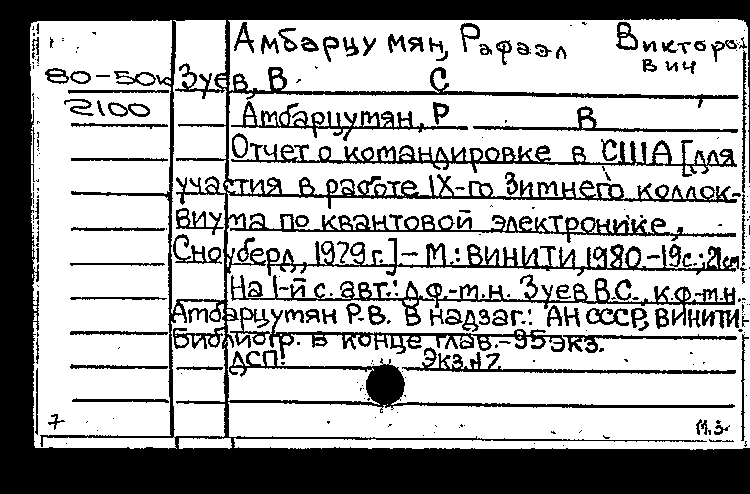 Амбарцумян, Рафаэл Викторо
вич
80-50к Зуев, В С
2100 Амбарцумян, Р В
Отчет о командировке в США [для
участия в работе IX-го Зимнего коллок-
виума по квантовой электронике,
Сноуберд, 1979 г.] – М.: ВИНИТИ, 1980.-19с.; 21см
На 1-й с. авт.: д.ф.-м.н. Зуев В.С., к.ф-м.н.
Амбарцумян Р.В. В надзаг.: АН СССР, ВИНИТИ-
Библиогр. в конце глав.-95 экз.
ДСП! Экз.N7.
7 М.З-